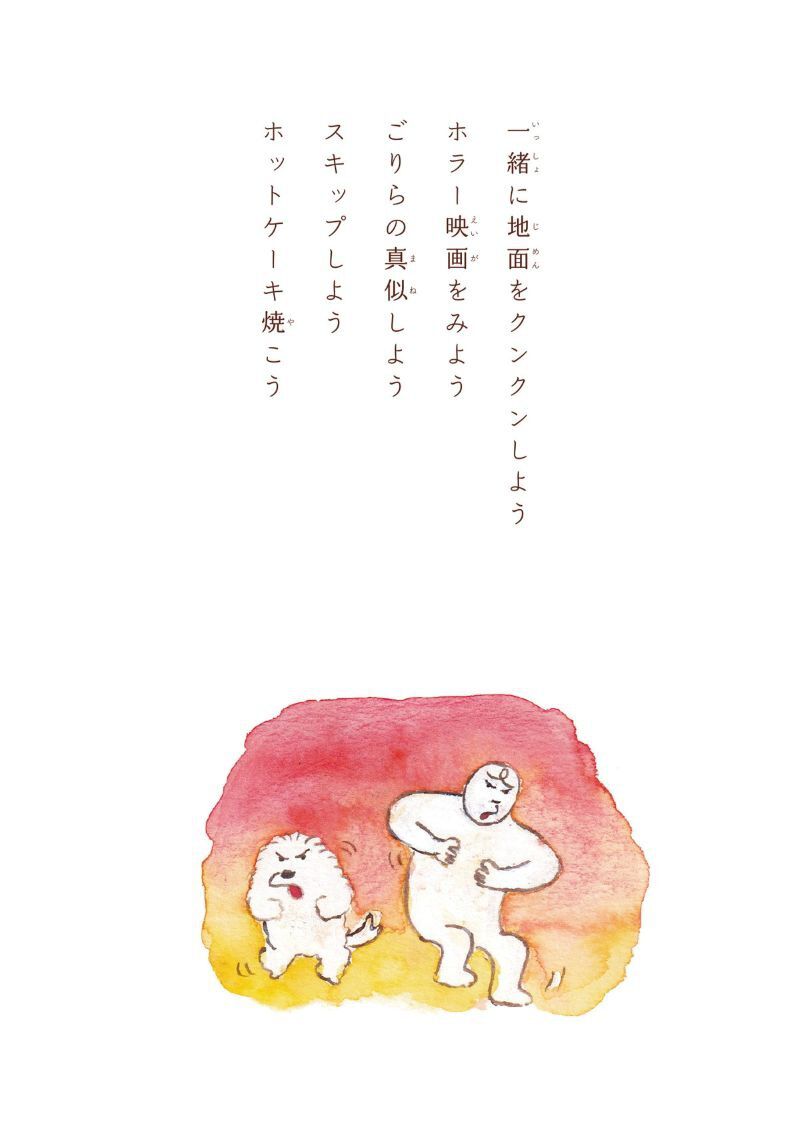 一緒に地面をクンクンしよう
ホラー映画をみよう
ごりらの真似しよう
スキップしよう
ホットケーキ焼こう